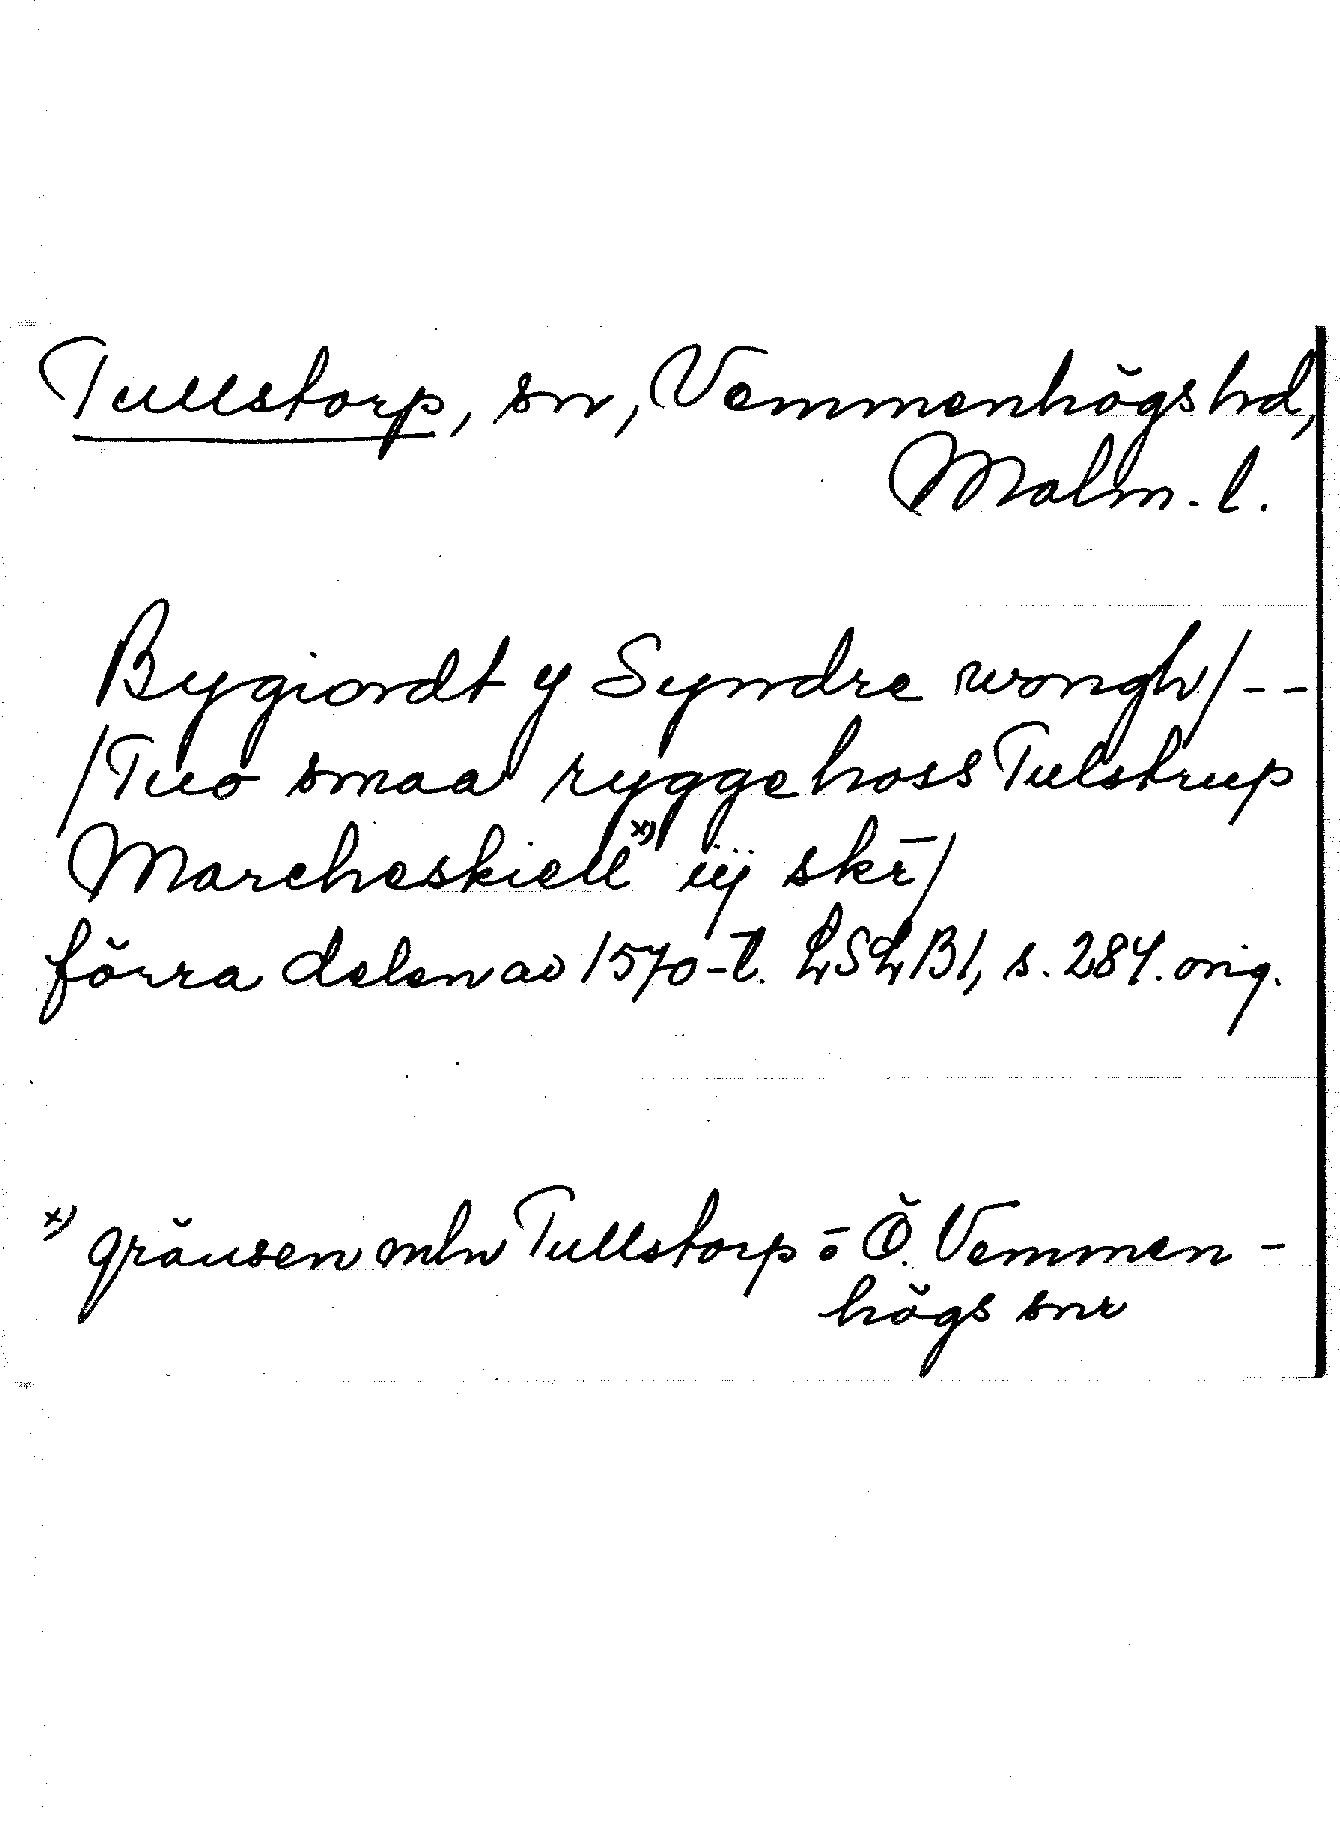 Tullstorp, sn, Vemmenhögs hd,
Malm. l.
Bygiordt y Syndre wongh/--
/Tuo smaa rygge hoss Tulstrup
Marcheskiell x) iij skr̄/
förra delen av 1570-t. LSLB1, s. 284. orig.
x) gränsen mln Tullstorp o Ö. Vemmen-
högs snr